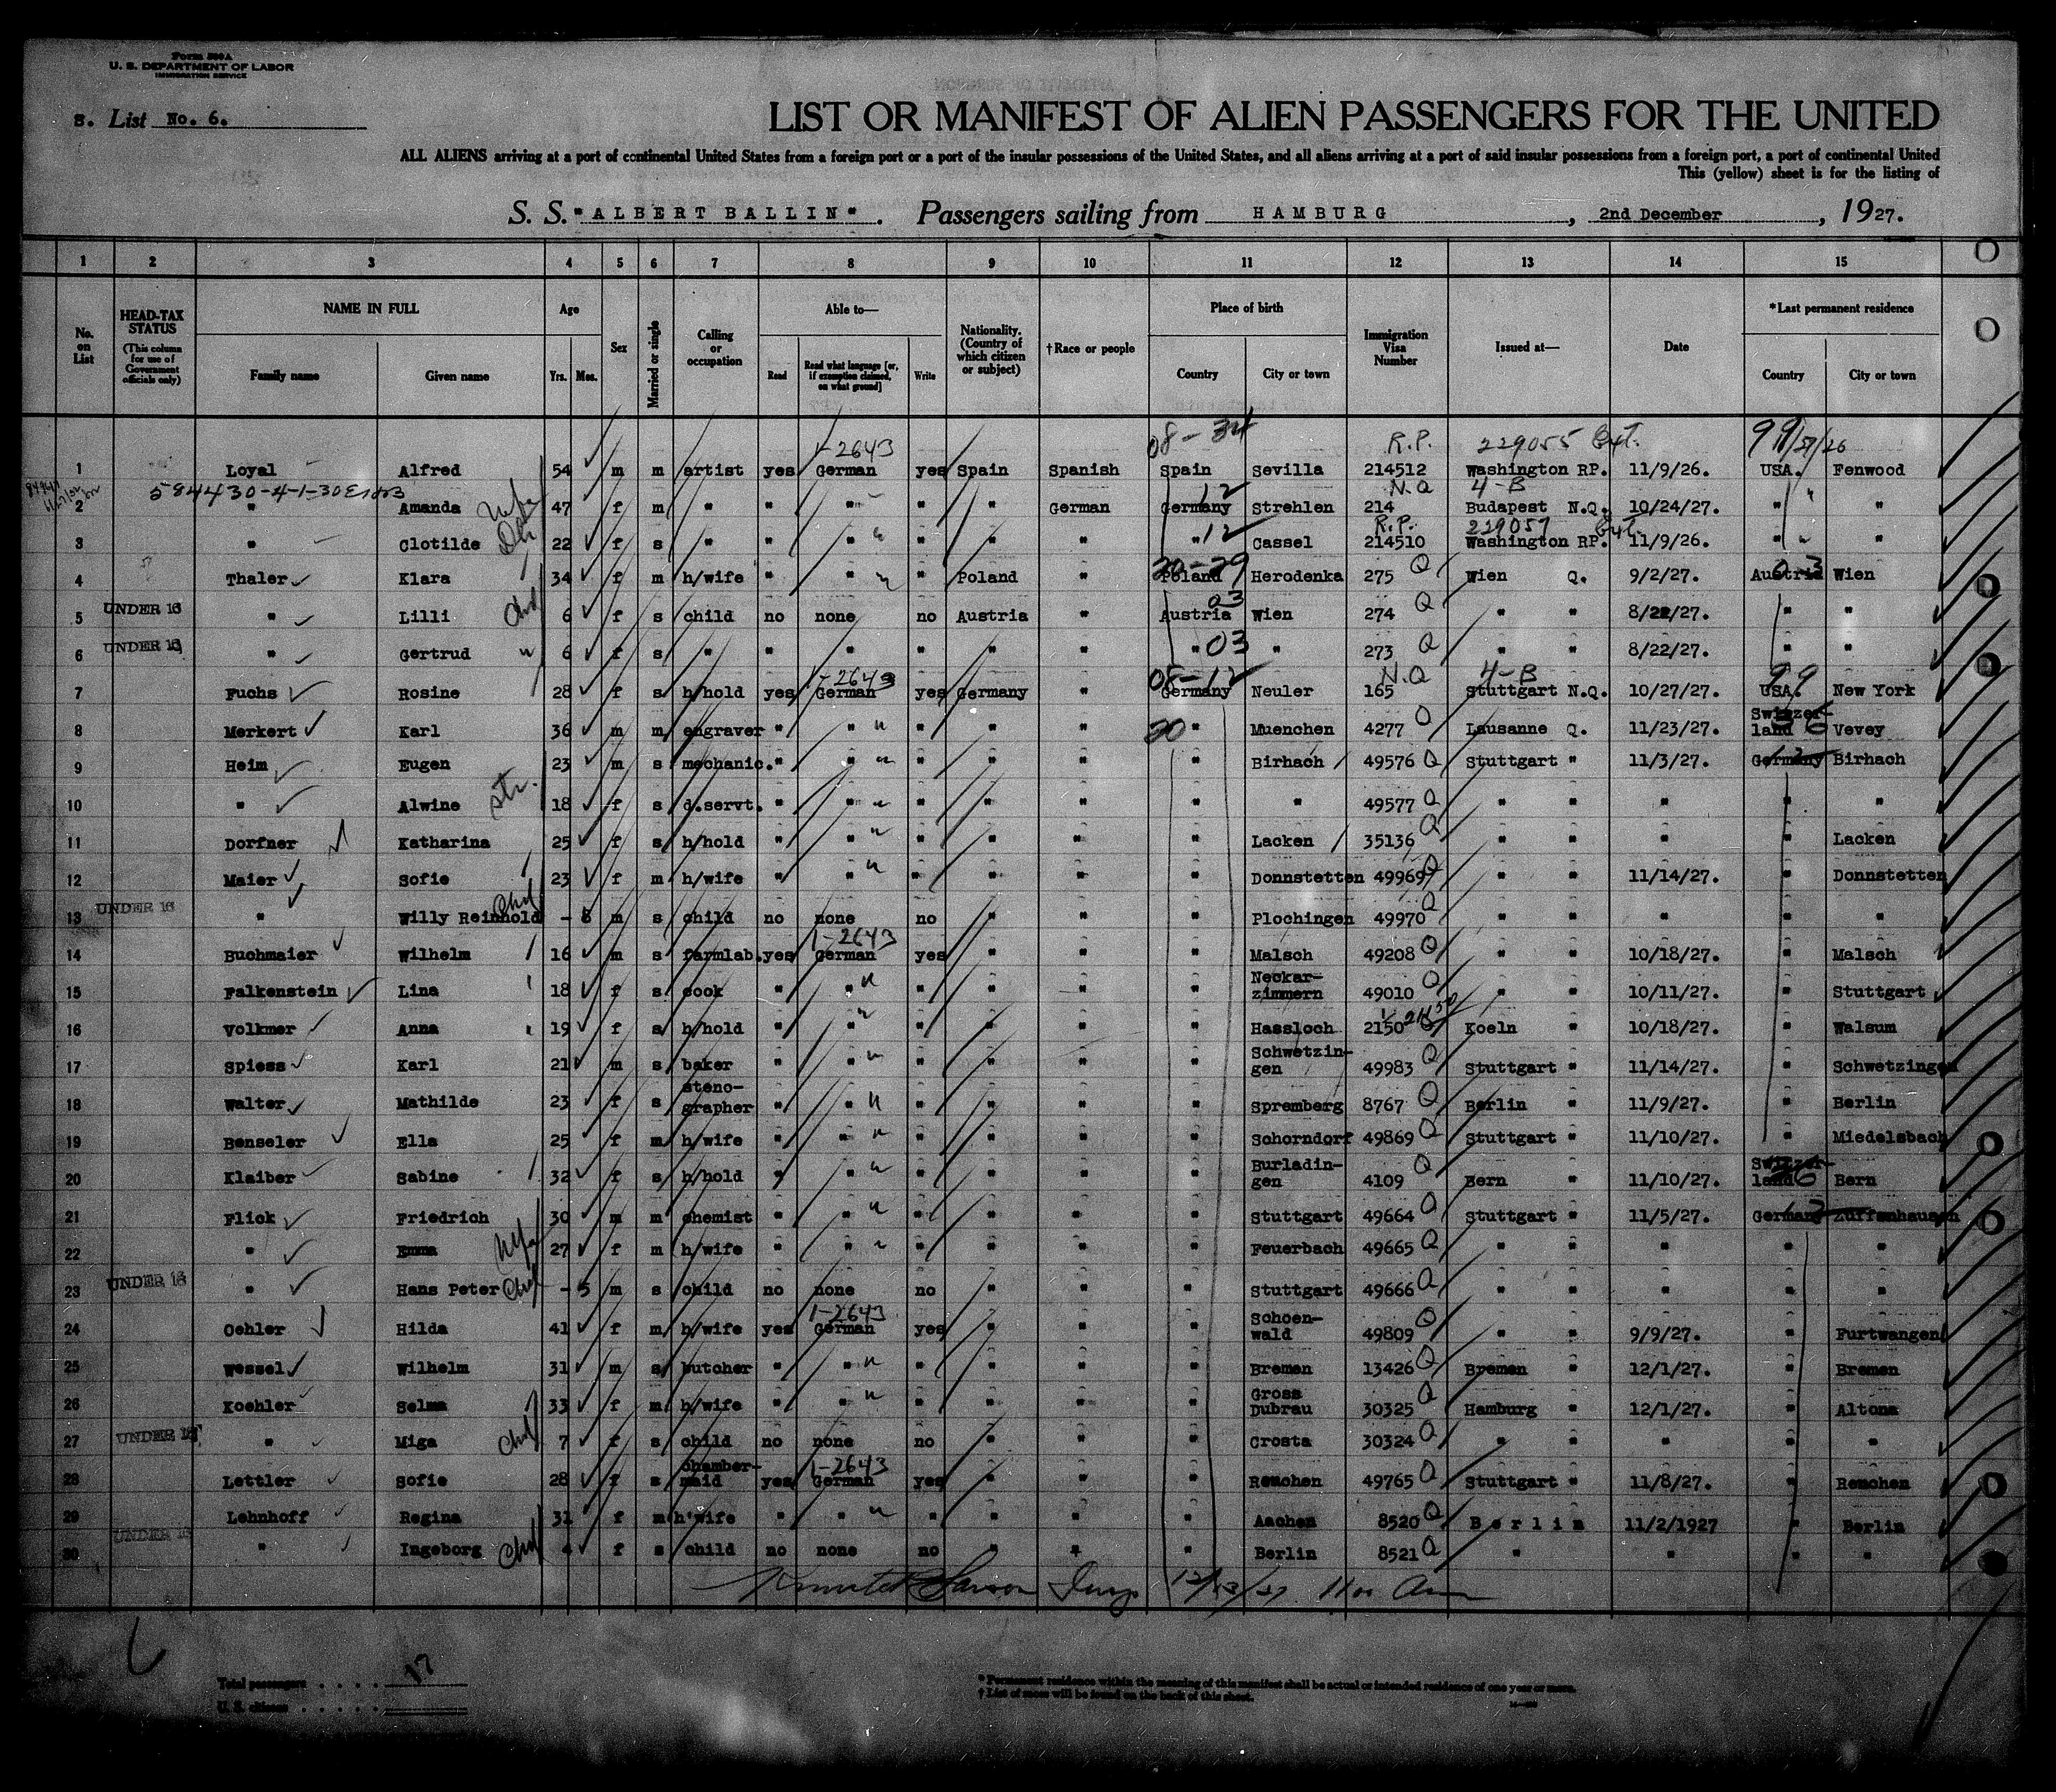 Form 500A
U. S. DEPARTMENT OF LABOR
IMMIGRATION SERVICE
S. List No. 6.
LIST OR MANIFEST OF ALIEN PASSENGERS FOR THE UNITED
ALL ALIENS arriving at a port of continental United States from a foreign port or a port of the insular possessions of the United States, and all aliens arriving at a port of said insular possessions from a foreign port, a port of continental United
This (yellow) sheet is for the listing of
S. S. "ALBERT BALLIN". Passengers sailing from HAMBURG, 2nd December, 1927.
1 2 3 4 5 6 7 8 9 10 11 12 13 14 15
No. on List
HEAD-TAX STATUS (This column for use of Government officials only)
NAME IN FULL Family name Given name
Age Yrs. Mos.
Sex
Married or single
Calling or occupation
Able to— Read Read what language [or, if exemption claimed, on what ground] Write
Nationality. (Country of which citizen or subject)
†Race or people
Place of birth Country City or town
Immigration Visa Number
Issued at—
Date
*Last permanent residence Country City or town
1-2643 08-34 R.P. 229055 Ext. 99
1 Loyal Alfred 54 m m artist yes German yes Spain Spanish Spain Sevilla 214512 Washington RP. 11/9/26. USA. Fenwood
584430-4-1-30 12 N.Q 4-B
2 " Amanda Wife 47 f m " " " " " German Germany Strehlen 214 Budapest N.Q. 10/24/27. " "
12 R.P. 229057 Ext.
3 " Clotilde 22 f s " " " " " " " Cassel 214510 Washington RP. 11/9/26. " "
20-29 03
4 Thaler Klara 34 f m h/wife " " " Poland " Poland Herodenka 275 Q Wien Q. 9/2/27. Austria Wien
03
5 UNDER 16 " Lilli Chd 6 f s child no none no Austria " Austria Wien 274 Q " " 8/22/27. " "
6 UNDER 16 " Gertrud " 6 f s " " " " " " " 03 " 273 Q " " 8/22/27. " "
1-2643 08-12 N.Q 4-B 99
7 Fuchs Rosine 28 f s h/hold yes German yes Germany " Germany Neuler 165 Stuttgart N.Q. 10/27/27. USA. New York
8 Merkert Karl 36 m m engraver " " " " " " Muenchen 4277 Q Lausanne Q. 11/23/27. Switzerland Vevey
9 Heim Eugen 23 m s mechanic. " " " " " " Birhach 49576 Q Stuttgart " 11/3/27. Germany Birhach
10 " Alwine str. 18 f s d.servt. " " " " " " " 49577 Q " " " " "
11 Dorfner Katharina 25 f s h/hold " " " " " " Lacken 35136 Q " " " " Lacken
12 Maier Sofie 23 f m h/wife " " " " " " Donnstetten 49969 Q " " 11/14/27. " Donnstetten
13 UNDER 16 " Willy Reinhold Chd - 8 m s child no none no " " " Plochingen 49970 Q " " " " "
1-2643
14 Buchmaier Wilhelm 16 m s farmlab. yes German yes " " " Malsch 49208 Q " " 10/18/27. " Malsch
15 Falkenstein Lina 18 f s cook " " " " " " Neckar-zimmern 49010 Q " " 10/11/27. " Stuttgart
16 Volkmer Anna 19 f s h/hold " " " " " " Hassloch 2150 Koeln " 10/18/27. " Walsum
17 Spiess Karl 21 m s baker " " " " " " Schwetzin-gen 49983 Q Stuttgart " 11/14/27. " Schwetzingen
18 Walter Mathilde 23 f s steno-grapher " " " " " " Spremberg 8767 Q Berlin " 11/9/27. " Berlin
19 Benseler Ella 25 f m h/wife " " " " " " Schorndorf 49869 Q Stuttgart " 11/10/27. " Miedelsbach
20 Klaiber Sabine 32 f s h/hold " " " " " " Burladin-gen 4109 Q Bern " 11/10/27. Switzer-land Bern
21 Flick Friedrich 30 m m chemist " " " " " " Stuttgart 49664 Q Stuttgart " 11/5/27. Germany Zuffenhausen
22 " Emma Wife 27 f m h/wife " " " " " " Feuerbach 49665 Q " " " " "
23 UNDER 16 " Hans Peter Chd - 5 m s child no none no " " " Stuttgart 49666 Q " " " " "
1-2643
24 Oehler Hilda 41 f m h/wife yes German yes " " " Schoen-wald 49809 Q " " 9/9/27. " Furtwangen
25 Wessel Wilhelm 31 m s butcher " " " " " " Bremen 13426 Q Bremen " 12/1/27. " Bremen
26 Koehler Selma 33 f m h/wife " " " " " " Gross Dubrau 30325 Q Hamburg " 12/1/27. " Altona
27 UNDER 16 " Miga Chd 7 f s child no none no " " " Crosta 30324 Q " " " " "
1-2643
28 Lettler Sofie 28 f s chamber-maid yes German yes " " " Remchen 49765 Q Stuttgart " 11/8/27. " Remchen
29 Lehnhoff Regina 31 f m h'wife " " " " " " Aachen 8520 Q Berlin 11/2/1927 " Berlin
30 UNDER 16 " Ingeborg Chd 4 f s child no none no " " " Berlin 8521 Q " " " "
Insp 12/13/27 11 00 Am
Total passengers 17
U. S. citizens
* Permanent residence within the meaning of this manifest shall be actual or intended residence of one year or more.
† List of races will be found on the back of this sheet.